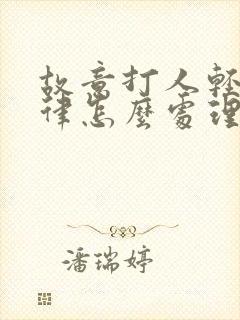 故意打人輕
律怎麼處理
潘瑞婷